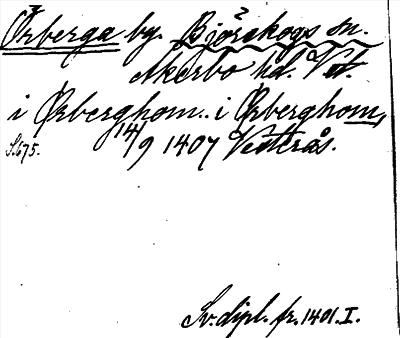 Ørberga by. Björskogs sn.
Åkerbo hd. Vst.
i Ørberghom.. i Ørberghom,
S.675. 14/9 1407 Västerås.
Sv. dipl. fr. 1401. I.